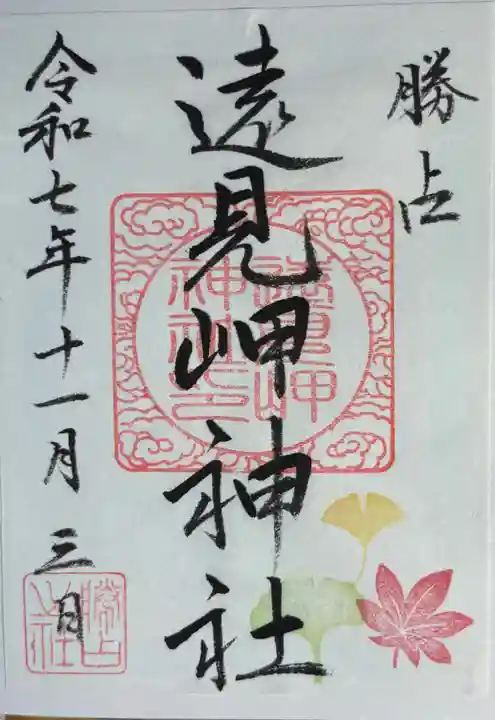 勝占
遠見岬神社
令和七年十一月三日
遠見岬
神社之印
勝占